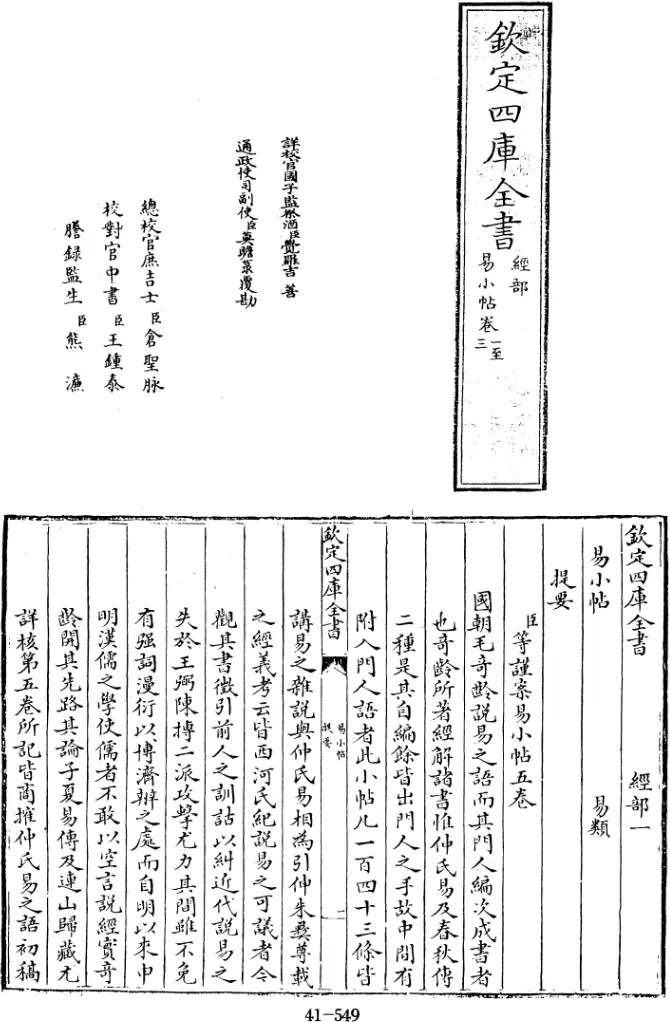 欽定四庫全書
經部
易小帖卷一至三
詳校官國子監祭酒臣覺羅吉善
通政使司副使臣莫瞻菉覆勘
總校官庶吉士臣倉聖脉
校對官中書臣王鍾泰
謄錄監生臣熊濂
欽定四庫全書 經部一
易小帖 易類
提要
臣等謹案易小帖五卷
國朝毛奇齡說易之語而其門人編次成書者
也奇齡所著經解諸書惟仲氏易及春秋傳
二種是其自編餘皆出門人之手故中間有
附入門人語者此小帖凡一百四十三條皆
欽定四庫全書
易小帖
提要
二
講易之雜說與仲氏易相為引伸朱彛尊載
之經義考云皆西河氏紀說易之可議者今
觀其書徵引前人之訓詁以糾近代說易之
失於王弼陳摶二派攻擊尤力其間雖不免
有强詞漫衍以博濟辨之處而自明以來申
明漢儒之學使儒者不敢以空言說經實奇
齡開其先路其論子夏易傳及連山歸藏尤
詳核第五卷所記皆商搉仲氏易之語初稿
41-549